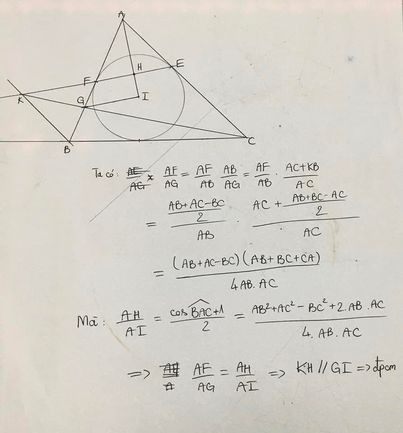 A
F H E
K G I
B C
Ta có: AF/AG = AF/AB · AB/AG = AF/AB · (AC+KB)/AC
= ((AB+AC-BC)/2)/AB · (AC + (AB+BC-AC)/2)/AC
= (AB+AC-BC)(AB+BC+CA)/(4AB.AC)
Mà: AH/AI = (cos BAC+1)/2 = (AB²+AC²-BC²+2.AB.AC)/(4.AB.AC)
=> AF/AG = AH/AI => KH // GI => đpcm